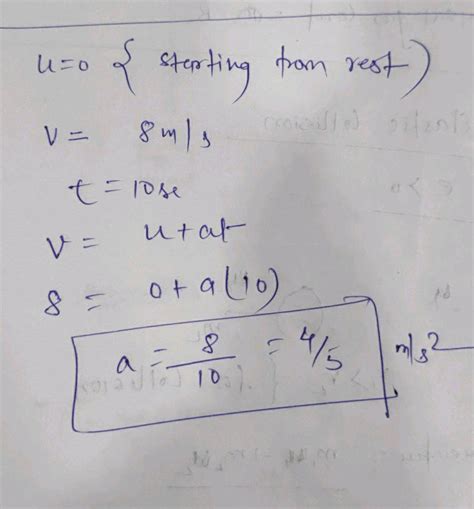 u=0 { starting from rest)
v = 8m/s
t = 10se
v = u+at
8 = 0+a(10)
a = 8/10 = 4/5 m/s²